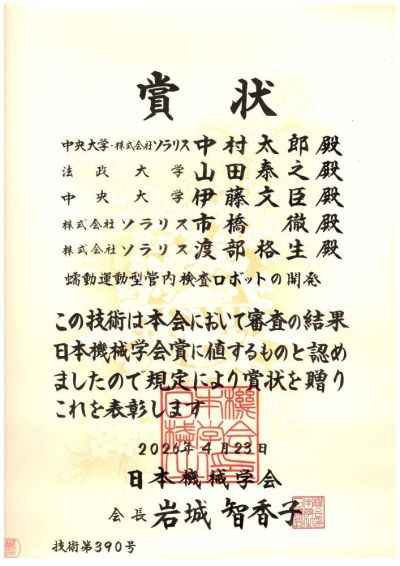 賞状
中央大学・株式会社ソラリス 中村太郎殿
法政大学 山田泰之殿
中央大学 伊藤文臣殿
株式会社ソラリス 市橋徹殿
株式会社ソラリス 渡部裕生殿
蠕動運動型管内検査ロボットの開発
この技術は本会において審査の結果
日本機械学会賞に値するものと認め
ましたので規定により賞状を贈り
これを表彰します
2026年4月23日
日本機械学会
会長 岩城智香子
技術第390号